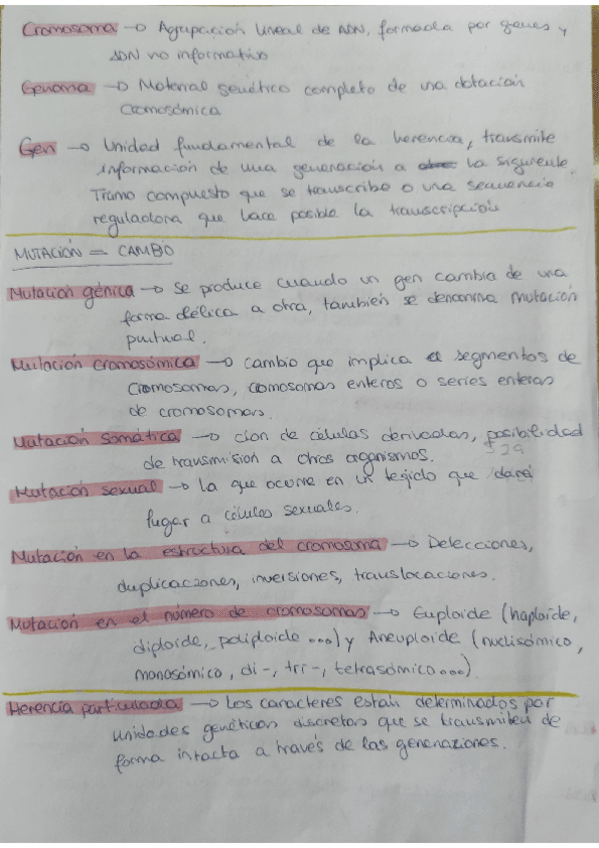 Cromosoma → Agrupación lineal de ADN, formada por genes y
ADN no informativo
Genoma → Material genético completo de una dotación
cromosómica
Gen → Unidad fundamental de la herencia, transmite
información de una generación a la siguiente.
Tramo compuesto que se transcribe o una secuencia
reguladora que hace posible la transcripción
MUTACIÓN = CAMBIO
Mutación génica → Se produce cuando un gen cambia de una
forma alélica a otra, también se denomina mutación
puntual.
Mutación cromosómica → cambio que implica segmentos de
cromosomas, cromosomas enteros o series enteras
de cromosomas.
Mutación somática → clon de células derivadas, posibilidad
de transmisión a otros organismos.
Mutación sexual → la que ocurre en un tejido que dará
lugar a células sexuales.
Mutación en la estructura del cromosoma → Delecciones,
duplicaciones, inversiones, translocaciones.
Mutación en el número de cromosomas → Euploide (haploide,
diploide, poliploide ...) y Aneuploide (nulisómico,
monosómico, di-, tri-, tetrasómico...)
Herencia particulada → Los caracteres están determinados por
unidades genéticas discretas que se transmiten de
forma intacta a través de las generaziones.